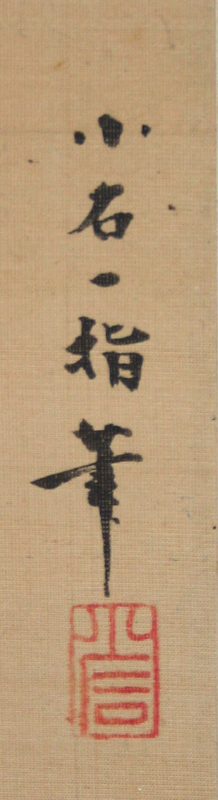 小石一指筆